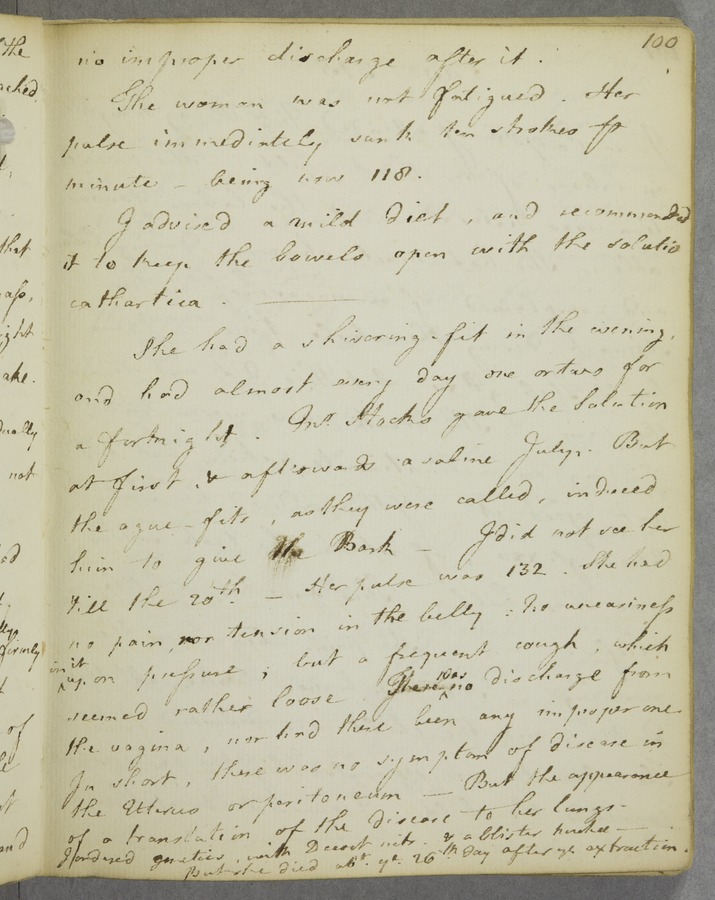 100
no improper discharge after it.
The woman was not fatigued. Her
pulse immediately sunk ten strokes ℔
minute – being now 118.
I advised a mild diet, and recommended
it to keep the bowels open with the solutio
cathartica.
She had a shivering-fit in the evening,
and had almost every day one or two for
a fortnight. Mr. Stocks gave the Solution
at first, & afterwards a saline Julep. But
the ague-fits, as they were called, induced
him to give the Bark – I did not see her
till the 20th. – Her pulse was 132. She had
no pain, nor tension in the belly: no uneasiness
in it
upon pressure; but a frequent cough, which
seemed rather loose. There was no discharge from
the vagina, nor had there been any improper one
In short, there was no symptom of disease in
the Uterus or peritoneum – But the appearance
of a translation of the disease to her lungs –
I ordered with Decoct. nitr. & a blister
But she died abt. ye. 26th day after ye extraction.